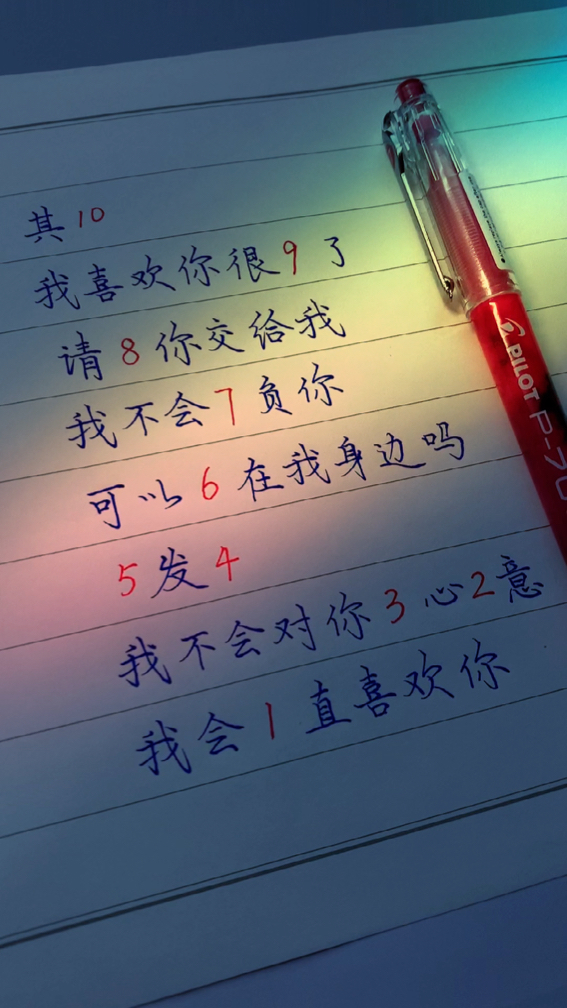 其10
我喜欢你很9了
请8你交给我
我不会7负你
可以6在我身边吗
5发4
我不会对你3心2意
我会1直喜欢你
PILOT P-70